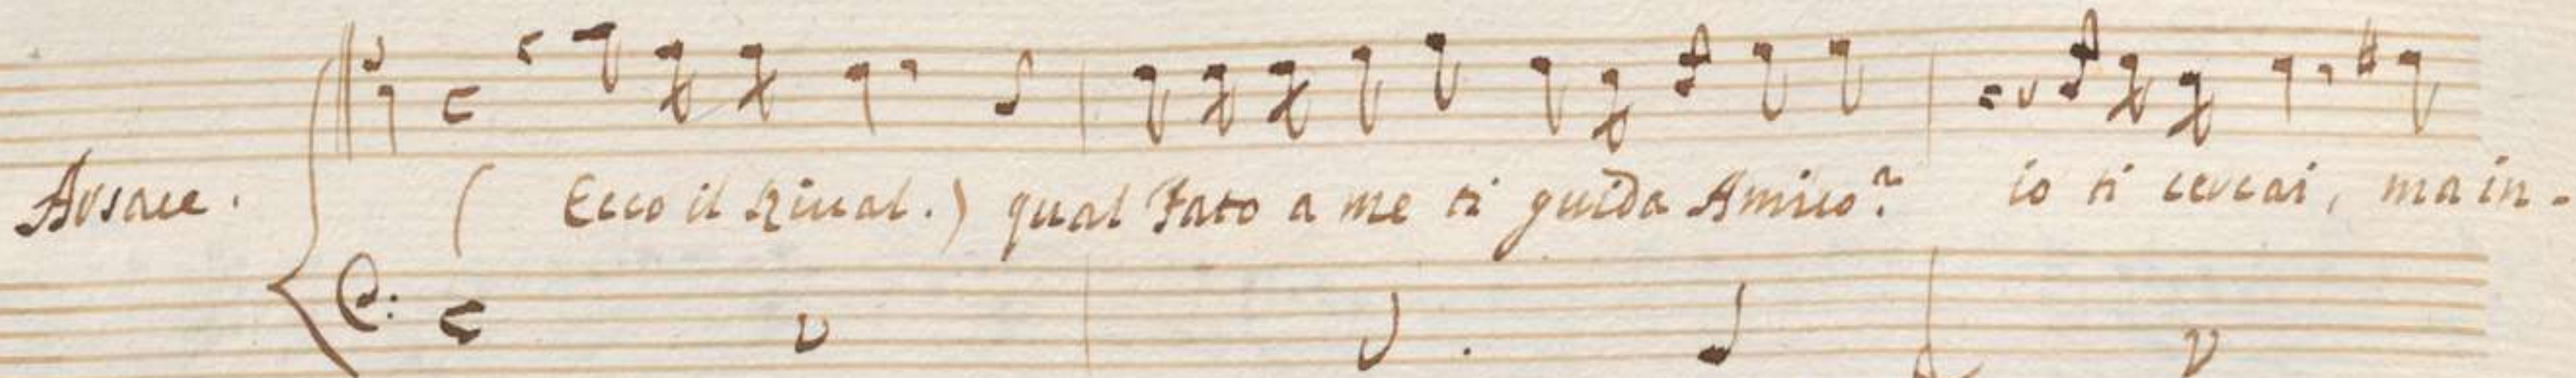 Arsace.
( Ecco il Rival.) qual Fato a me ti guida Amico? io ti cercai, ma in-